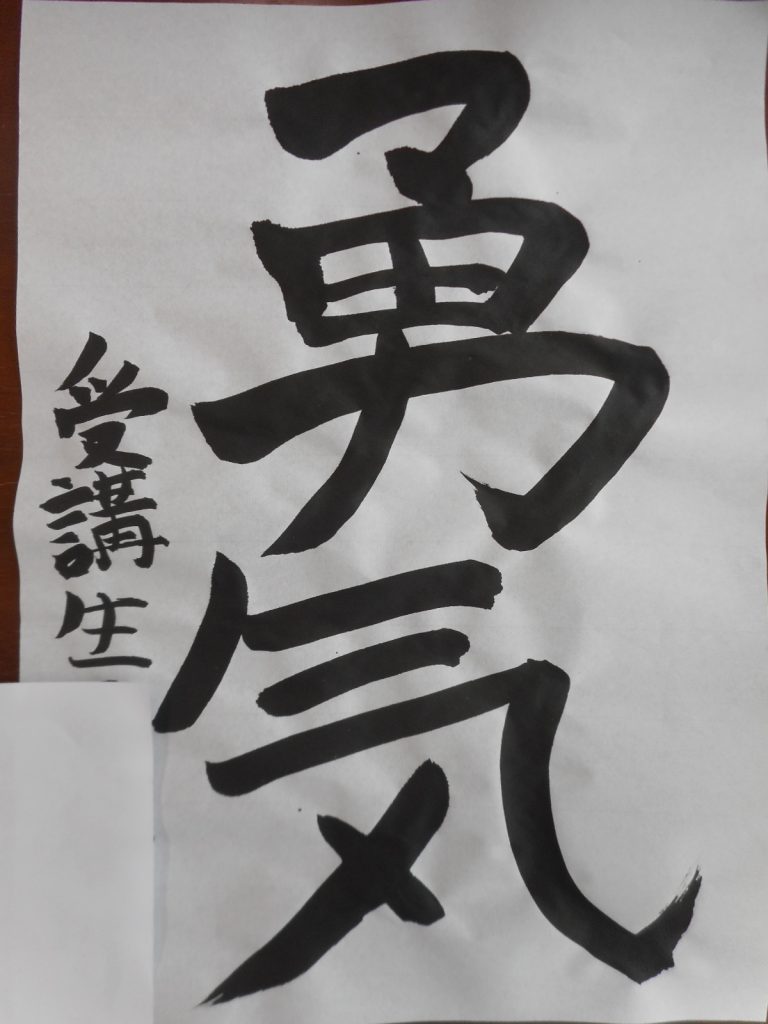 勇気
受講生